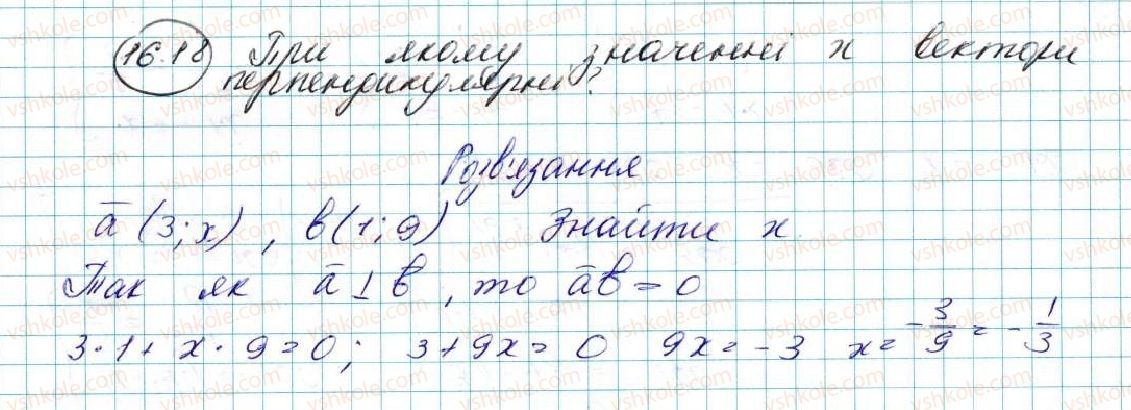 16.18 При якому значенні x вектори
перпендикулярні?
Розв'язання
a̅ (3; x), b(1; 9) Знайти x.
Так як a̅ ⊥ b̅, то a̅b̅ = 0
3·1 + x·9 = 0; 3 + 9x = 0 9x = -3 x = -3/9 = -1/3